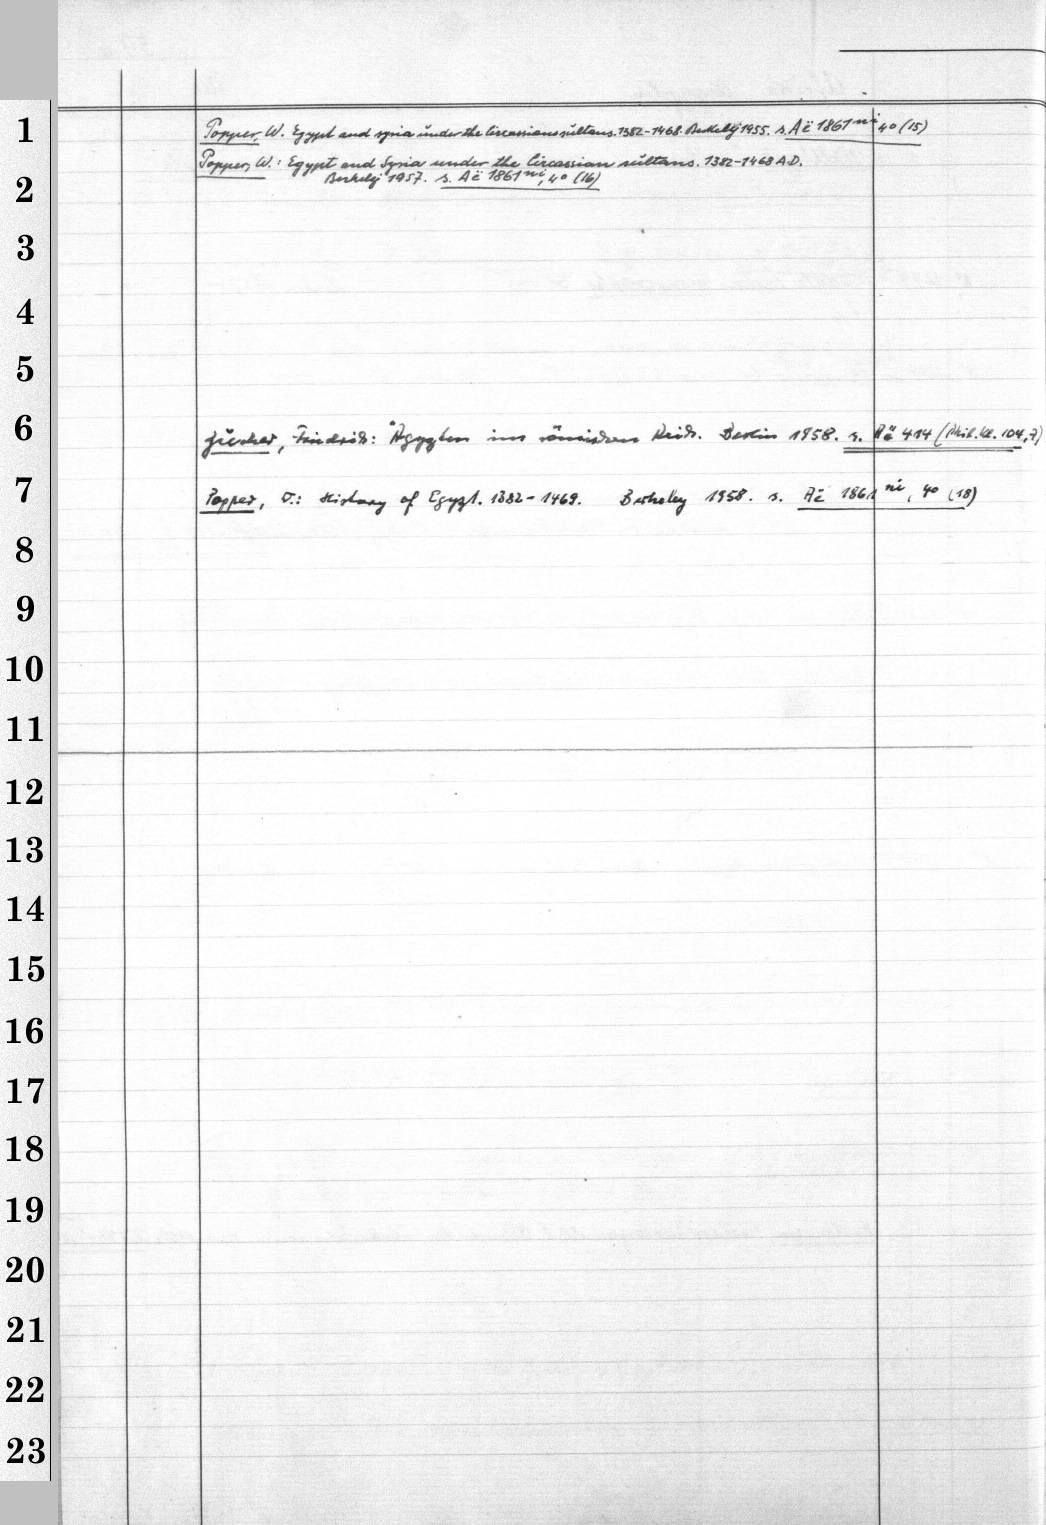 1
Popper, W. Egypt and syria under the Circassians sultans. 1382-1468. Berkely 1955. s. Aë 1861 ni 4° (15)
Popper, W.: Egypt and Syria under the Circassian sultans. 1382-1468 A.D.
2
Berkely 1957. s. Aë 1861 ni, 4° (16)
3
4
5
6
Zucker, Friedrich: Ägypten im römischen Reich. Berlin 1958. s. Aë 414 (Phil. Kl. 104,7)
7
Popper, W.: History of Egypt. 1382-1469. Berkeley 1958. s. Aë 1861 ni, 4° (18)
8
9
10
11
12
13
14
15
16
17
18
19
20
21
22
23